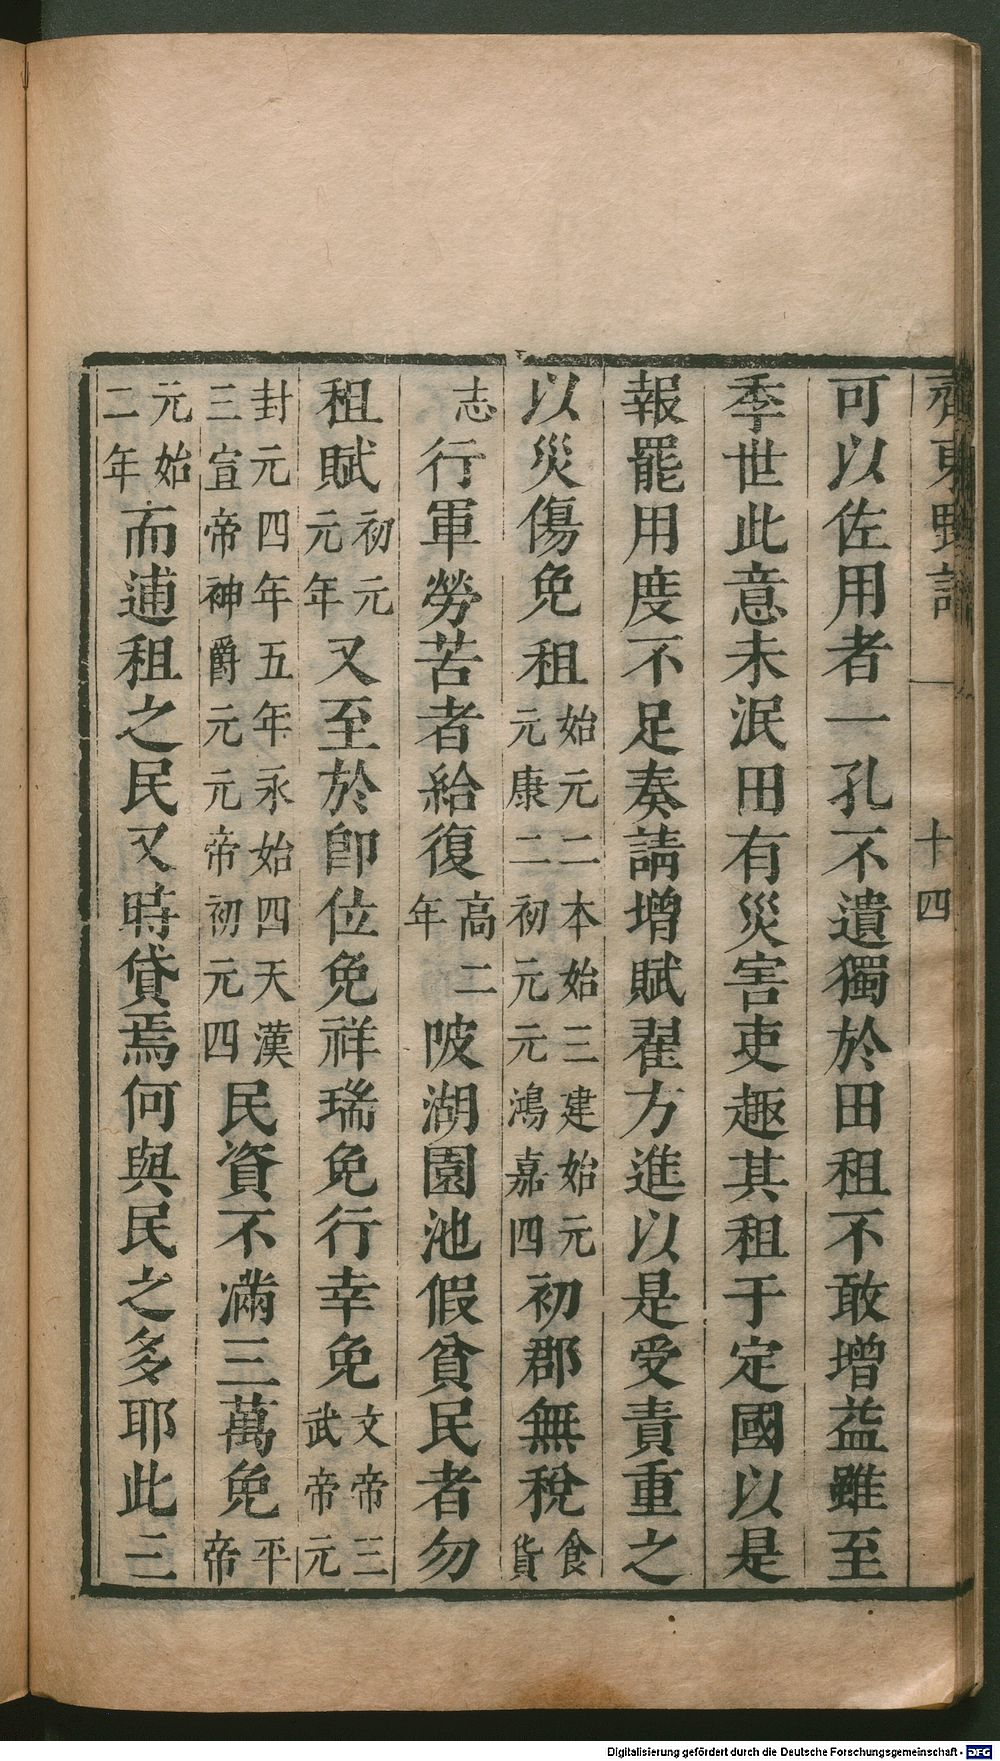 齊東野語 十四
可以佐用者一孔不遺獨於田租不敢增益雖至
季世此意未泯田有災害吏趣其租于定國以是
報罷用度不足奏請增賦翟方進以是受責重之
以災傷免租始元二本始三建始元元康二初元元鴻嘉四初郡無稅食貨
志行軍勞苦者給復高二年陂湖園池假貧民者勿
租賦初元元年又至於卽位免祥瑞免行幸免文帝三武帝元
封元四年五年永始四天漢三宣帝神爵元元帝初元四民資不滿三萬免平帝
元始二年而逋租之民又時貸焉何與民之多耶此三
Digitalisierung gefördert durch die Deutsche Forschungsgemeinschaft - DFG